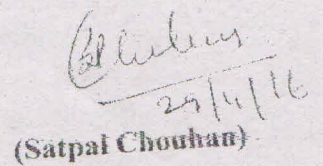 29/4/16
(Satpal Chouhan)